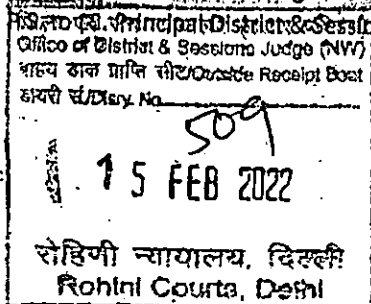 Principal District & Sessi
Office of District & Sessions Judge (NW)
बाह्य डाक प्राप्ति सीट/Outside Receipt Seat
डायरी सं./Diary No.
509
15 FEB 2022
रोहिणी न्यायालय, दिल्ली
Rohini Courts, Delhi